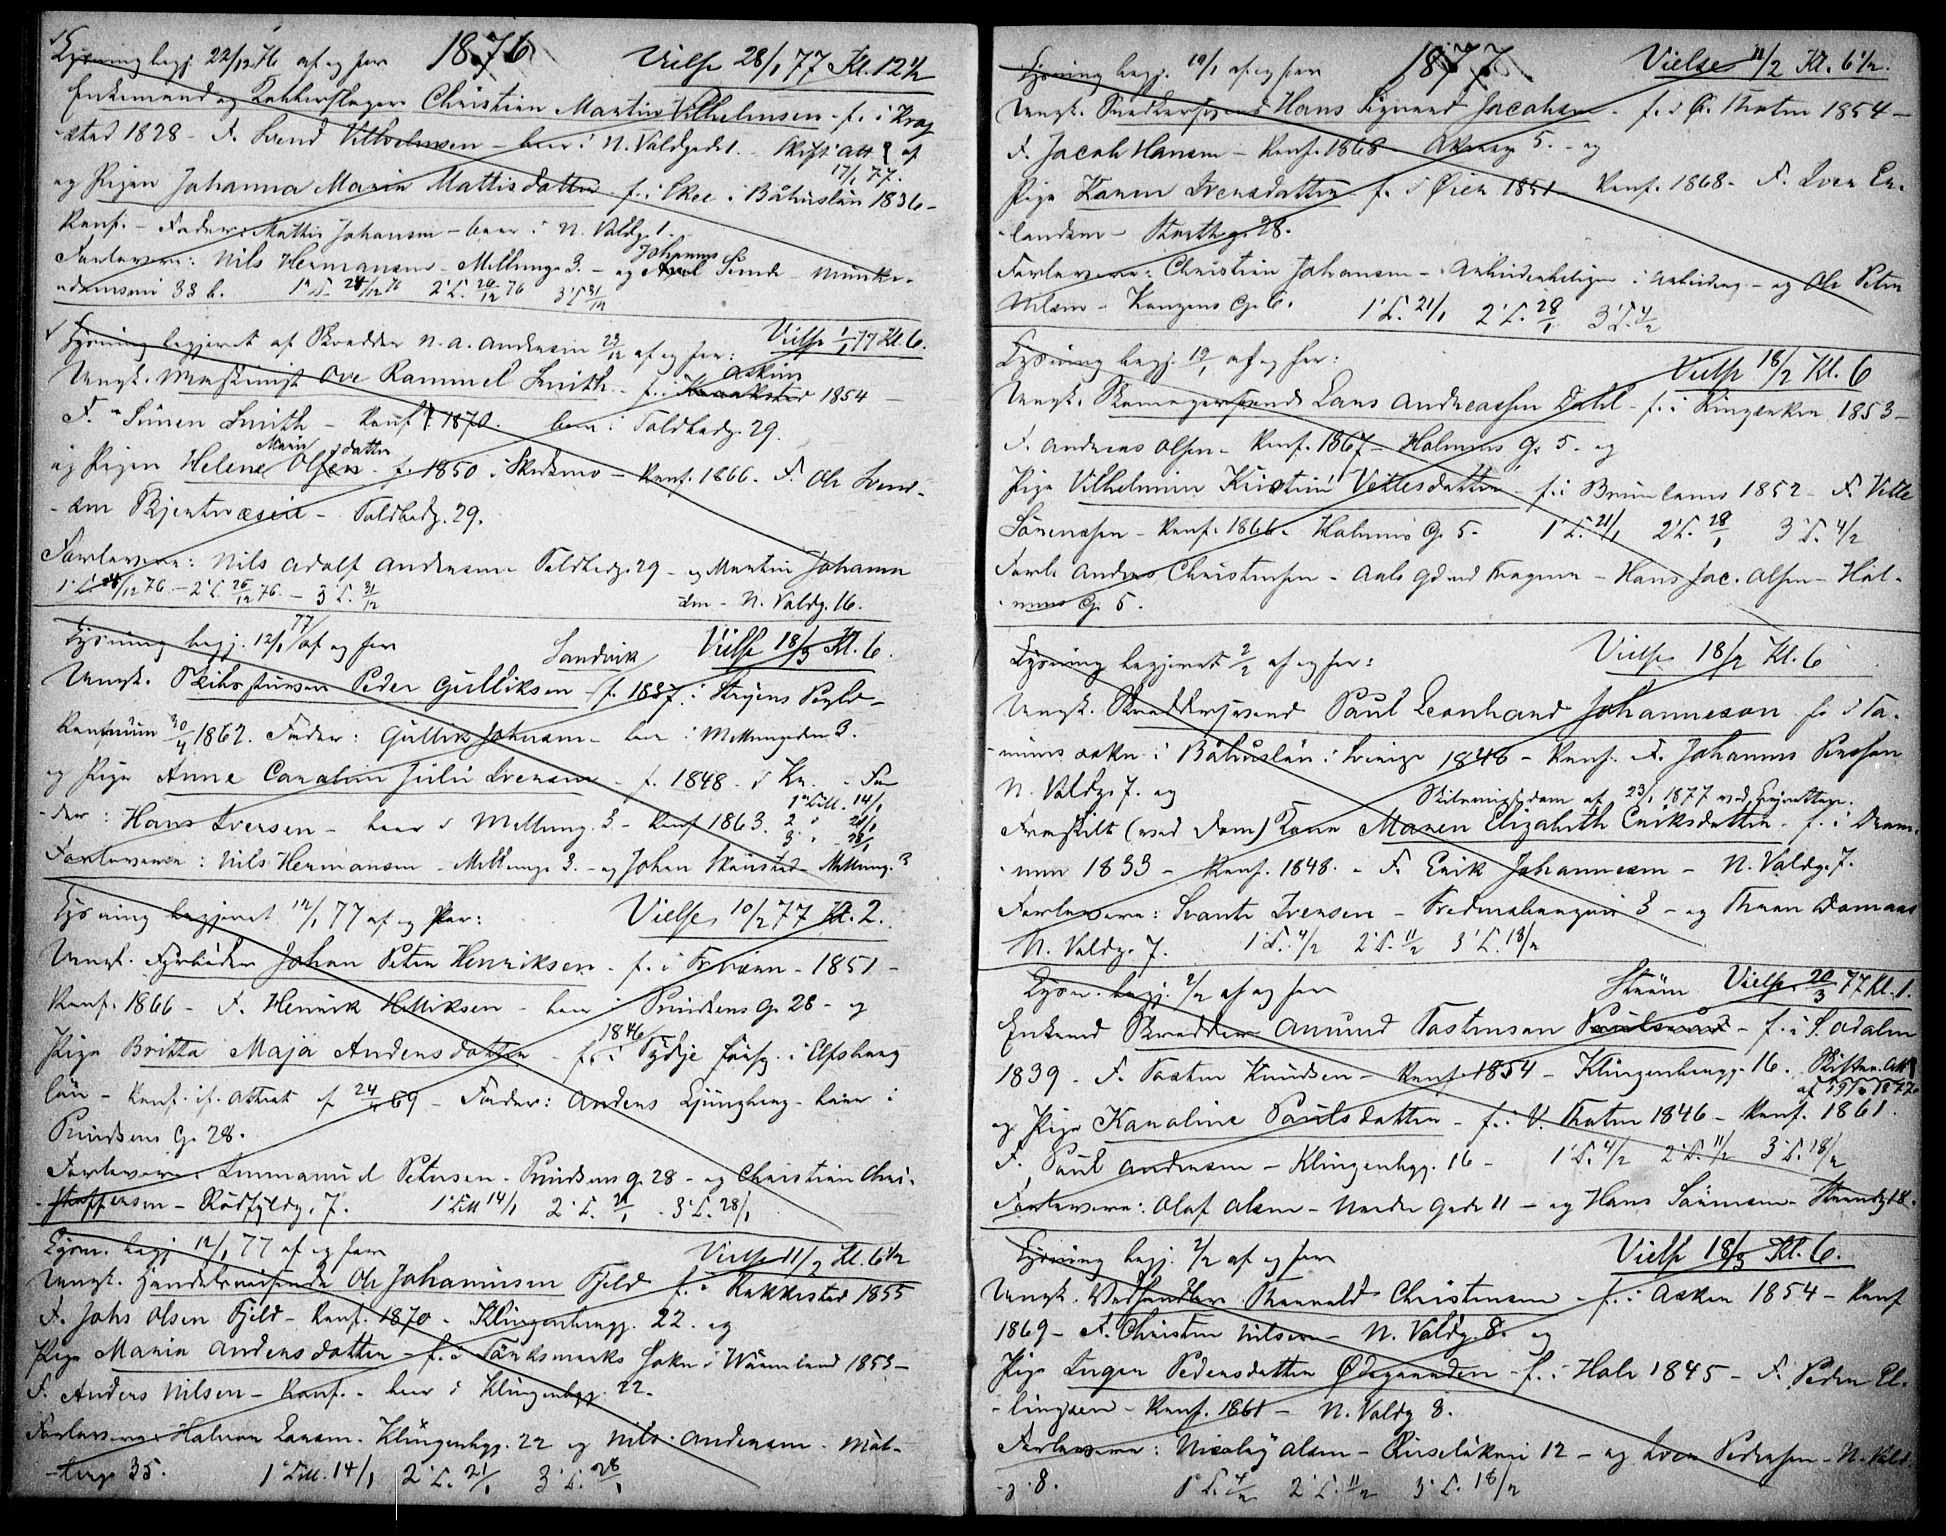 Lysning begj. 22/12 76 af og for 1876 Vielse 28/1 77 Kl. 12 1/2
Enkemand og Kobberslager Christian Martin Vilhelmsen - f. i Krog
-stad 1828 - F. Svend Vilhelmsen - boer i N. Voldgade 1. Skift. Att. af
17/1 77.
og Pigen Johanna Maria Mattisdatter f. i Skee i Båhuslän 1836 -
Konf. - Fader: Mattis Johansen - boer i N. Voldg. 1.
Forlovere: Nils Hermansen - Mellomg. 3. - og Johannes Sunde Munke-
-damsvei 33 b. 1' L. 24/12 76 2' L. 26/12 76 3' L. 31/12
Lysning begjæret af Skrædder N. A. Andersen 23/12 af og for: Vielse 1/1 77 Kl. 6.
Ungk. Maskinist Ove Rammel Smith - f. i Askim 1854 -
F. Simen Smith - Konf. 1870. boer i Toldbodg. 29.
og Pigen Helene Marie Olsdatter f. 1850 i Skedsmo - Konf. 1866. F. Ole Svend-
-sen Tjentvæsen - Toldbodg. 29.
Forlovere: Nils Adolf Andersen Toldbodg. 29 - og Martin Johann
1' L. 24/12 76. - 2' L. 26/12 76. - 3' L. 31/12 sen - N. Voldg. 16.
Lysning begj. 12/1 77 af og for Sandvik Vielse 18/3 Kl. 6.
Ungk. Skibstømmer Peder Gulliksen - f. 1837 i Strøens Prgld -
Konfirm 30/4 1862. Fader: Gullik Johnsen - boer i Mellemgaden 3.
og Pige Anne Caroline Julie Iversen - f. 1848 i Kr. - Fa
-der: Hans Iversen - boer i Mellemg. 3 - Konf 1863. 1' Lill. 14/1
2 " 21/1
3 " 28/1
Forlovere: Nils Hermansen - Mellemg. 3. - og Johan Skinstad Mellemg. 3
Lysning begjæret 12/1 77 af og for: Vielse 10/2 77 Kl. 2.
Ungk. Fyrbøder Johan Peter Henriksen - f. i Tryssen - 1851 -
Konf. 1866 - F. Henrik Henriksen - boer i Prindsens G. 28 - og
Pige Britta Maja Andersdatter - f. 1846 i Tydje förs. i Elfsborg
län - Konf. if. Attest af 24/11 69 - Fader: Anders Ljungberg - boer i
Prindsens G. 28.
Forlovere: Emmanuel Petersen - Prindsens g. 28 - og Christian Chri-
-stoffersen - Rødfyldg. 7. 1' Lill 14/1 2' L. 21/1 3' L. 28/1
Lysn. begj 12/1 77 af og for Vielse 11/2 Kl. 6 1/2
Ungk. Handelsreisende Ole Johannesen Fjeld f. i Rakkestad 1855
F. Johs Olsen Fjeld - Konf. 1870 - Klingenbergg. 22. og
Pige Maria Andersdatter - f. i Tärksmarks Sokn i Wärmland 1853 -
F. Anders Nilsen - Konf. - boer i Klingenbgg. 22 -
Forlovere: Halvor Larsen - Klingenbgg. 22 og Nils Andersen - Møl-
-lerg. 35. 1' Lill. 14/1 2' L. 21/1 3' L. 28/1
Lysning begj. 19/1 af og for 1877 Vielse 11/2 Kl. 6 1/2.
Ungk. Snedkersvend Hans Sigvard Jacobsen - f. i Ø. Thoten 1854 -
F. Jacob Hansen - Konf. 1868 Akersg. 5. - og
Pige Karen Iversdatter f. i Øier 1851 - Konf. 1868 - F. Iver Er-
-landsen - Storthg. 28.
Forlovere: Christian Johansen - Arbeiderboligen i Arbeiderg. - og Ole Peter
Nilsen - Kongens G. 6. 1' L. 21/1 2' L. 28/1 3' L. 4/2
Lysning begj. 19/1 af og for: Vielse 18/2 Kl. 6
Ungk. Skomagersvend Lars Andreassen Dahl - f. i Ringsaker 1853 -
F. Andreas Olsen - Konf. 1867 - Holmens G. 5. og
Pige Vilhelmine Kristine Vettesdatter - f. i Brunlanes 1852 - F. Vette
Sörenssen - Konf. 1866 - Holmens G. 5. 1' L. 21/1 2' L. 28/1 3' L. 4/2
Forl. Andreas Christensen - Aals Gd ved Frogner - Hans Jac. Olsen - Hol-
-mens G. 5.
Lysning begjæret 2/2 af og for: Vielse 18/2 Kl. 6
Ungk. Skræddersvend Paul Leonhard Johanneson f. i Ta-
-nums sokn i Båhuslän i Sverige 1848 - Konf. F. Johannes Persson
N. Voldg. 7. og Skilsmissedom af 23/1 1877 ved Byretten.
Fraskilt (ved Dom) Kone Maren Elizabeth Eriksdatter - f. i Dram-
-men 1833 - Konf. 1848. - F. Erik Johannesen - N. Voldg. 7.
Forlovere: Svante Ivensen - Fredensborgvei 3 - og Thean Tomas
N. Voldg. 7. 1' L. 4/2 2' L. 11/2 3' L. 18/2
Lysn. begj. 2/2 af og for Strøm Vielse 20/3 77 Kl. 1.
Enkemd Skrædder Amund Tostensen Paulsrud - f. i S. Odalen
1839 - F. Tosten Knudsen - Konf. 1854 - Klingenbergg. 16. Skifter. Att
og Pige Karoline Paulsdatter - f. i V. Thoten 1846 - Konf. 1861.
F. Paul Andersen - Klingenbgg. 16 - 1' L. 4/2 2' L. 11/2 3' L. 18/2
Forlovere: Olaf Olsen - Nordre Gade 11 - og Hans Sörensen - Strandg. 18.
Lysning begj. 2/2 af og for Vielse 18/3 Kl. 6.
Ungk. Vedhandler Thorvald Christensen - f. i Asker 1854 - Konf
1869 - F. Christen Nilsen - N. Voldg. 8. og
Pige Inger Pedersdatter Ødegaarden - f. i Hole 1845 - F. Peder El-
-lingsen - Konf. 1861 - N. Voldg 8.
Forlovere: Nicolay Olsen - Pinseløkken 12 - og Iver Pedersen - N. Vold
-g. 8. 1' L. 4/2 2' L. 11/2 3' L. 18/2